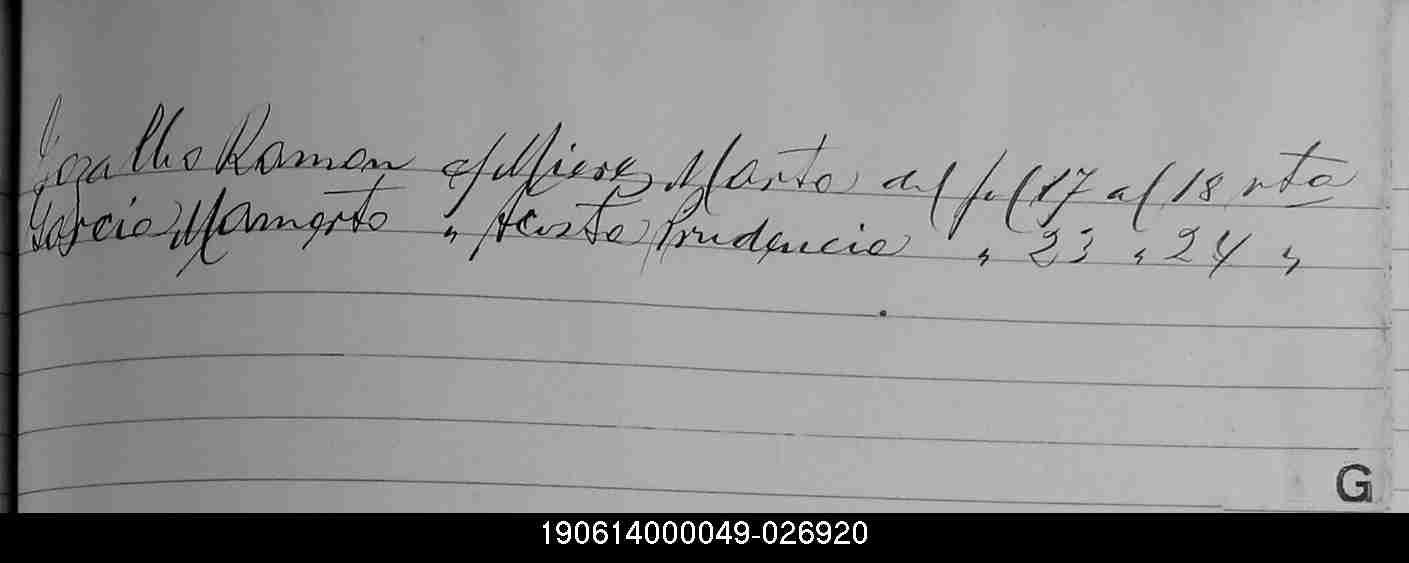 Ramon c/ Mierez Marta del fol 17 al 18 vta
Garcia Mamerto " Acosta Prudencia " 23 " 24 "
G
190614000049-026920